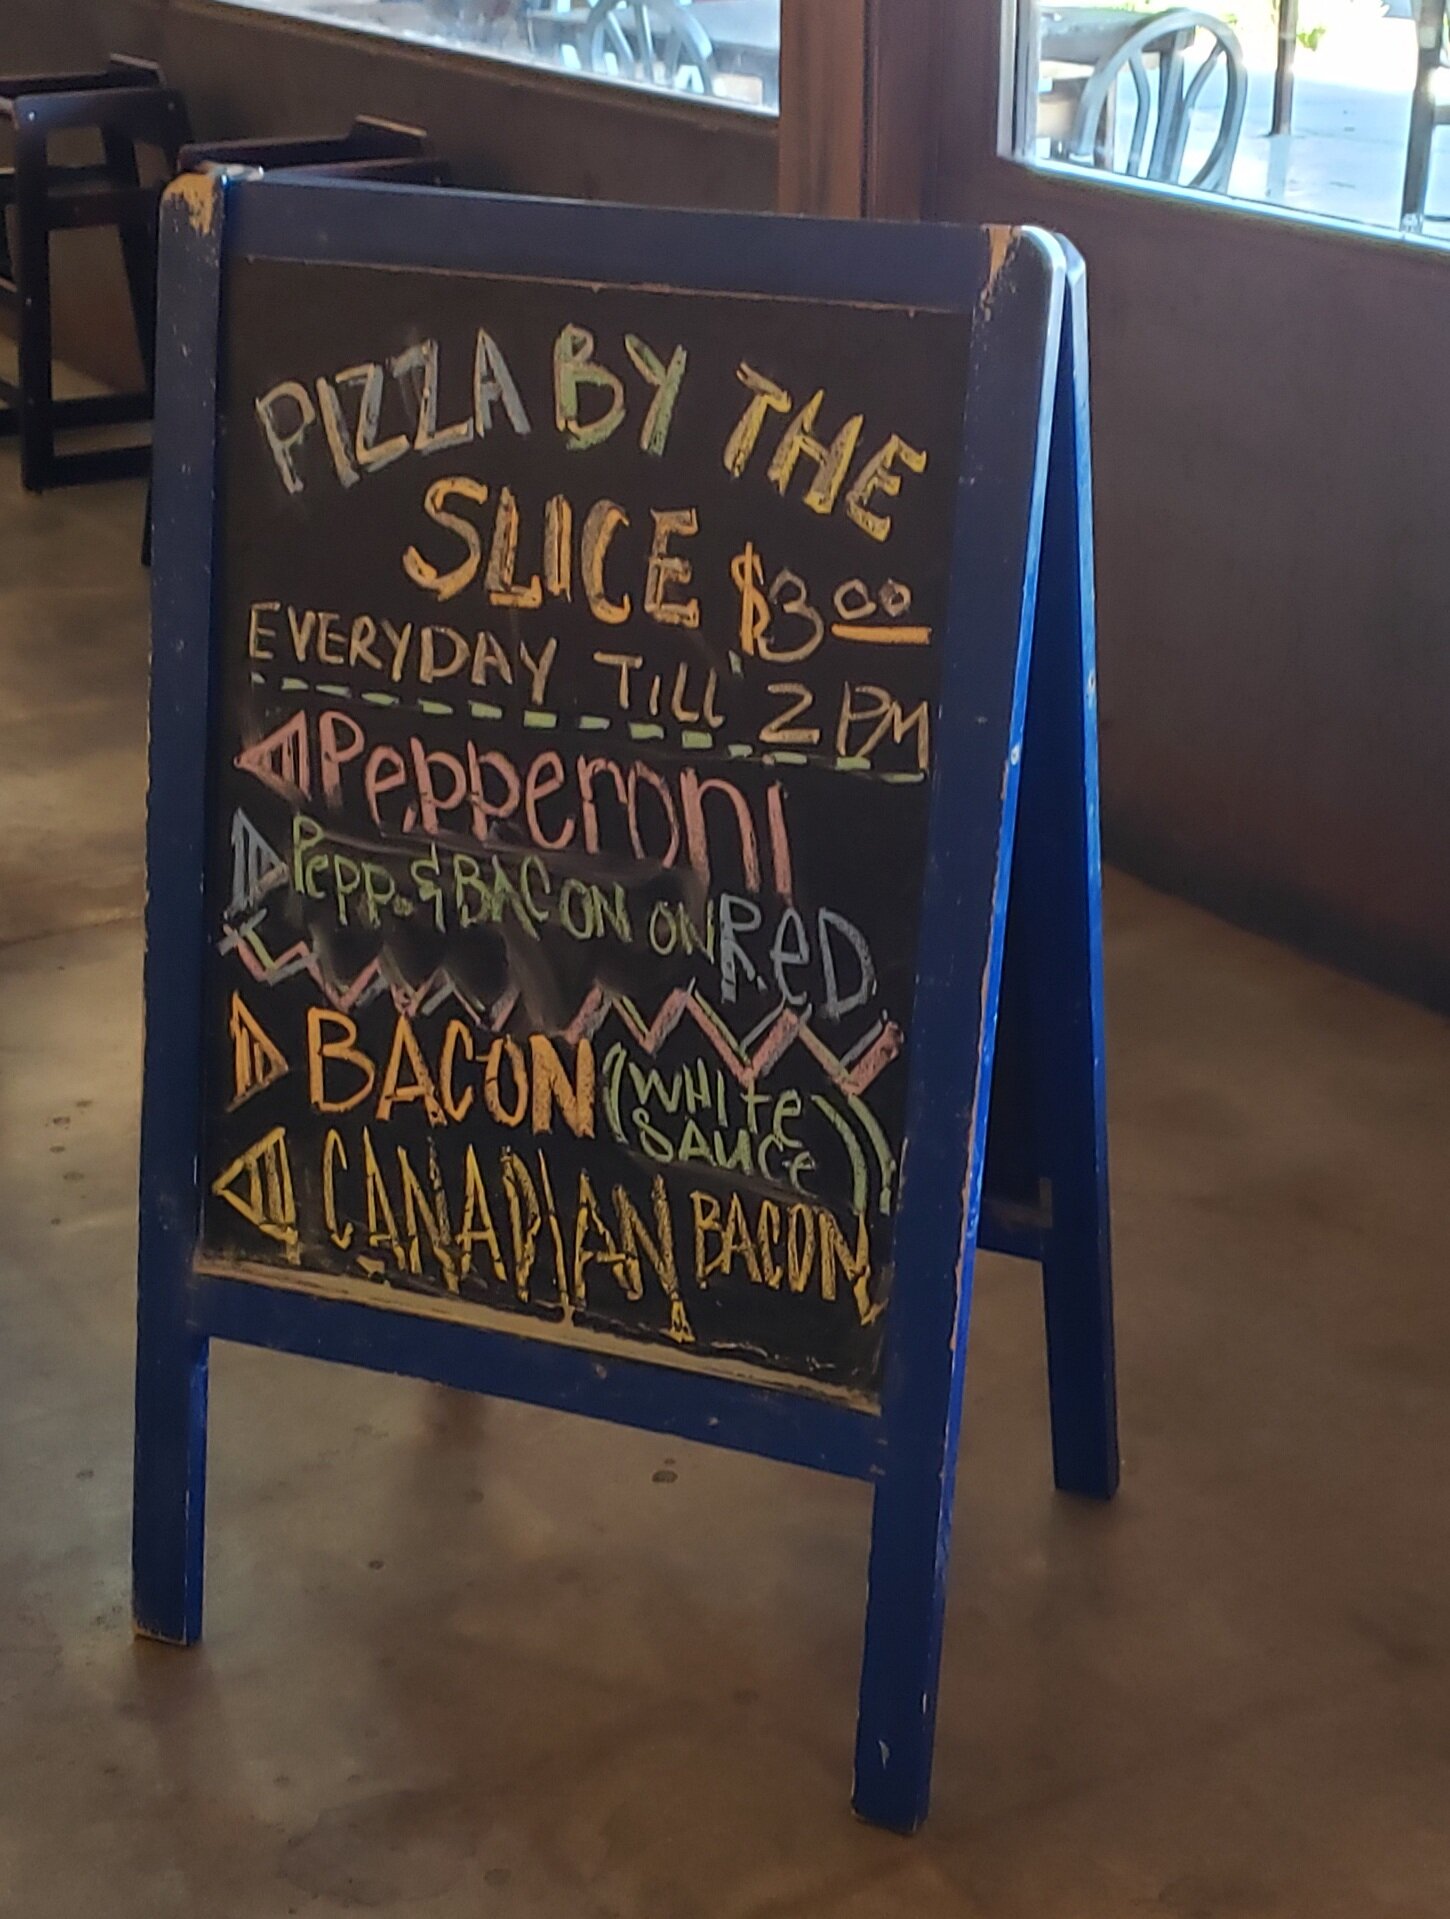 PIZZA BY THE
SLICE $3.00
EVERYDAY TILL 2 PM
Pepperoni
Pepp. & BACON ON ReD
BACON (WHITe
SAUCe)
CANADIAN BACON